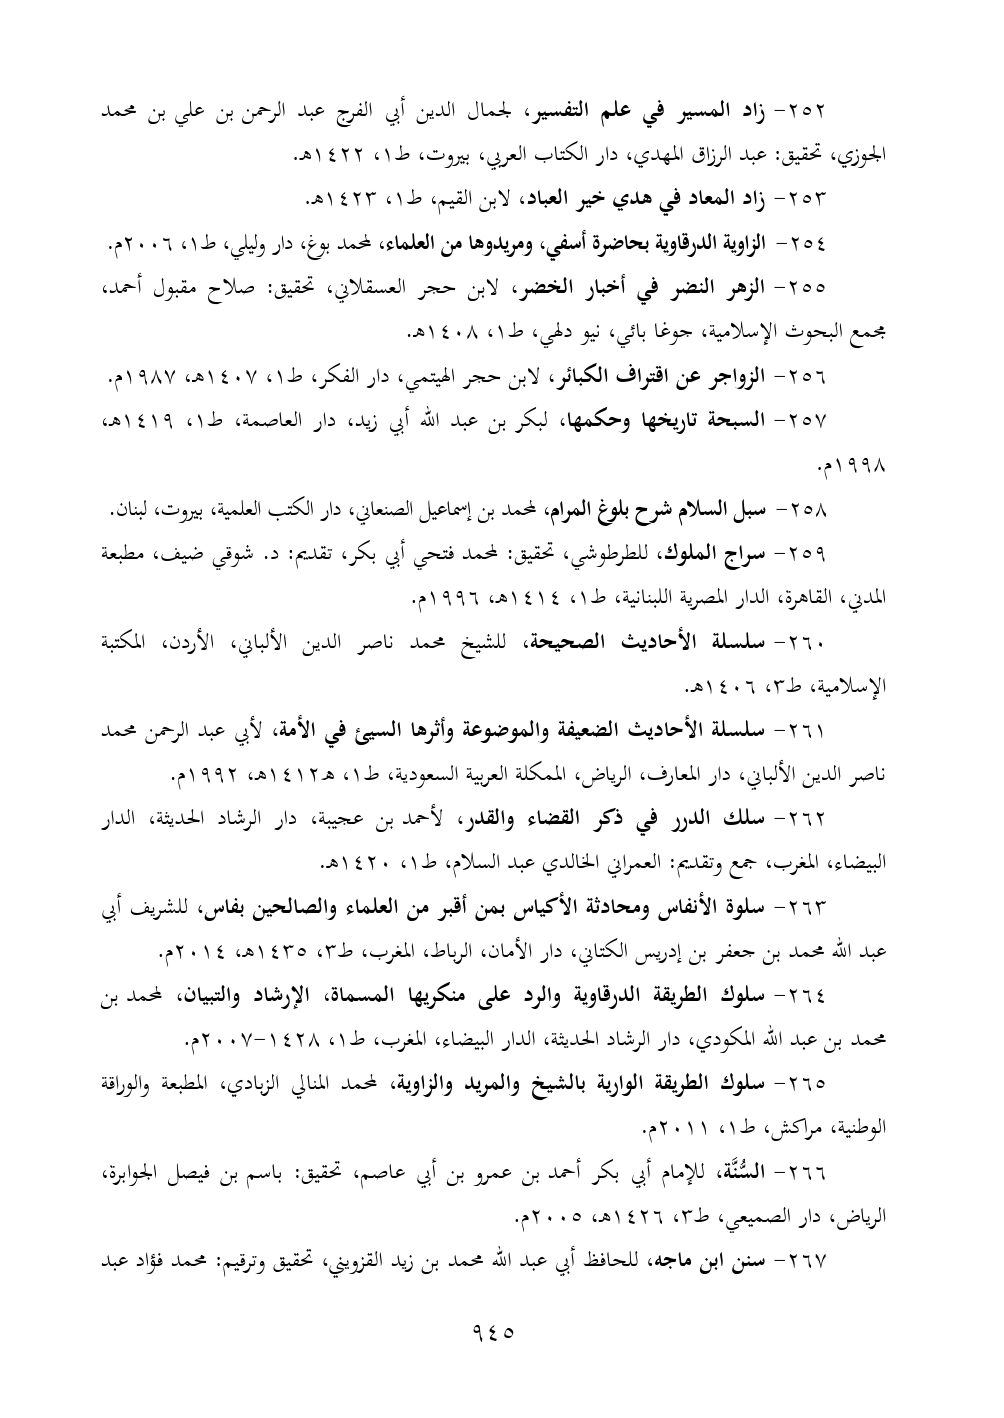 ٢٥٢- زاد المسير في علم التفسير، لجمال الدين أبي الفرج عبد الرحمن بن علي بن محمد
الجوزي، تحقيق: عبد الرزاق المهدي، دار الكتاب العربي، بيروت، ط١، ١٤٢٢هـ.
٢٥٣- زاد المعاد في هدي خير العباد، لابن القيم، ط١، ١٤٢٣هـ.
٢٥٤- الزاوية الدرقاوية بحاضرة أسفي، ومريدوها من العلماء، لمحمد بوغ، دار وليلي، ط١، ٢٠٠٦م.
٢٥٥- الزهر النضر في أخبار الخضر، لابن حجر العسقلاني، تحقيق: صلاح مقبول أحمد،
مجمع البحوث الإسلامية، جوغا بائي، نيو دلهي، ط١، ١٤٠٨هـ.
٢٥٦- الزواجر عن اقتراف الكبائر، لابن حجر الهيتمي، دار الفكر، ط١، ١٤٠٧هـ، ١٩٨٧م.
٢٥٧- السبحة تاريخها وحكمها، لبكر بن عبد الله أبي زيد، دار العاصمة، ط١، ١٤١٩هـ،
١٩٩٨م.
٢٥٨- سبل السلام شرح بلوغ المرام، لمحمد بن إسماعيل الصنعاني، دار الكتب العلمية، بيروت، لبنان.
٢٥٩- سراج الملوك، للطرطوشي، تحقيق: محمد فتحي أبي بكر، تقديم: د. شوقي ضيف، مطبعة
المدني، القاهرة، الدار المصرية اللبنانية، ط١، ١٤١٤هـ، ١٩٩٦م.
٢٦٠- سلسلة الأحاديث الصحيحة، للشيخ محمد ناصر الدين الألباني، الأردن، المكتبة
الإسلامية، ط٣، ١٤٠٦هـ.
٢٦١- سلسلة الأحاديث الضعيفة والموضوعة وأثرها السيئ في الأمة، لأبي عبد الرحمن محمد
ناصر الدين الألباني، دار المعارف، الرياض، الممكلة العربية السعودية، ط١، هـ١٤١٢هـ، ١٩٩٢م.
٢٦٢- سلك الدرر في ذكر القضاء والقدر، لأحمد بن عجيبة، دار الرشاد الحديثة، الدار
البيضاء، المغرب، جمع وتقديم: العمراني الخالدي عبد السلام، ط١، ١٤٢٠هـ.
٢٦٣- سلوة الأنفاس ومحادثة الأكياس بمن أقبر من العلماء والصالحين بفاس، للشريف أبي
عبد الله محمد بن جعفر بن إدريس الكتاني، دار الأمان، الرباط، المغرب، ط٣، ١٤٣٥هـ، ٢٠١٤م.
٢٦٤- سلوك الطريقة الدرقاوية والرد على منكريها المسماة، الإرشاد والتبيان، لمحمد بن
محمد بن عبد الله المكودي، دار الرشاد الحديثة، الدار البيضاء، المغرب، ط١، ١٤٢٨-٢٠٠٧م.
٢٦٥- سلوك الطريقة الوارية بالشيخ والمريد والزاوية، لمحمد المنالي الزبادي، المطبعة والوراقة
الوطنية، مراكش، ط١، ٢٠١١م.
٢٦٦- السُّنَّة، للإمام أبي بكر أحمد بن عمرو بن أبي عاصم، تحقيق: باسم بن فيصل الجوابرة،
الرياض، دار الصميعي، ط٣، ١٤٢٦هـ، ٢٠٠٥م.
٢٦٧- سنن ابن ماجه، للحافظ أبي عبد الله محمد بن زيد القزويني، تحقيق وترقيم: محمد فؤاد عبد
٩٤٥